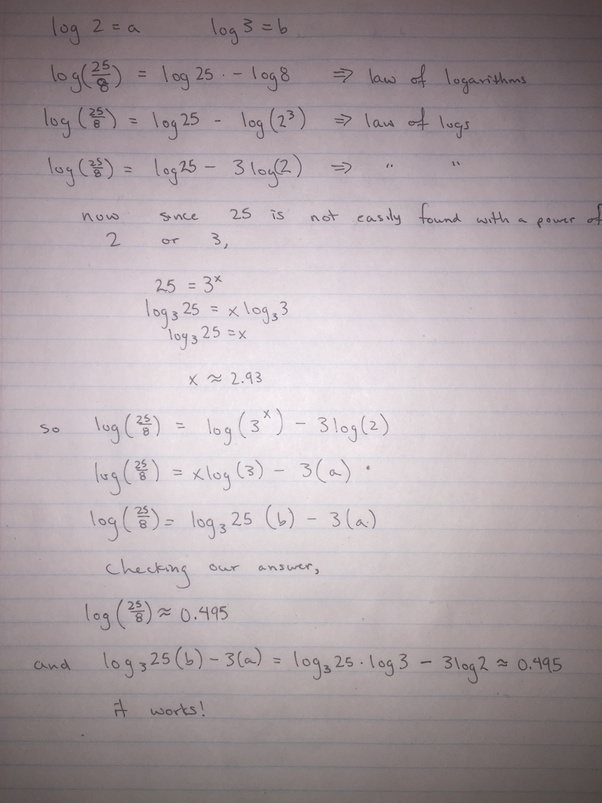 log 2 = a log 3 = b
log(25/8) = log 25 - log 8 ⇒ law of logarithms
log(25/8) = log 25 - log(2³) ⇒ law of logs
log(25/8) = log 25 - 3 log(2) ⇒ " "
now since 25 is not easily found with a power of
2 or 3,
25 = 3ˣ
log₃25 = x log₃3
log₃25 = x
x ≈ 2.93
so log(25/8) = log(3ˣ) - 3 log(2)
log(25/8) = x log(3) - 3(a)
log(25/8) = log₃25 (b) - 3(a)
Checking our answer,
log(25/8) ≈ 0.495
and log₃25(b) - 3(a) = log₃25 · log 3 - 3 log 2 ≈ 0.495
it works!